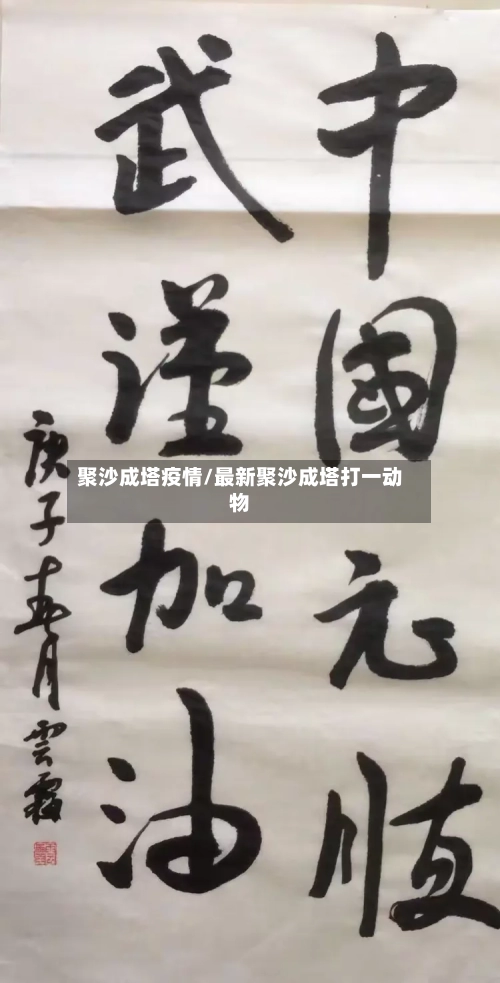 中國元順
武漢加油
庚子春月雲
聚沙成塔疫情/最新聚沙成塔打一动
物